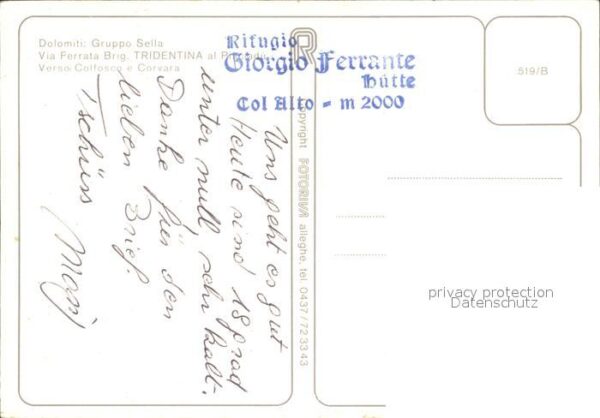 Dolomiti: Gruppo Sella
Via Ferrata Brig. TRIDENTINA al
Verso Colfosco e Corvara
Rifugio
Giorgio Ferrante
hütte
Col Alto - m 2000
519/B
Uns geht es gut
Heute sind 18 grad
unter null, sehr kalt.
Danke für den
lieben Brief.
Tschüss
copyright FOTORIVA alleghe. tel. 0437/723343
privacy protection
Datenschutz